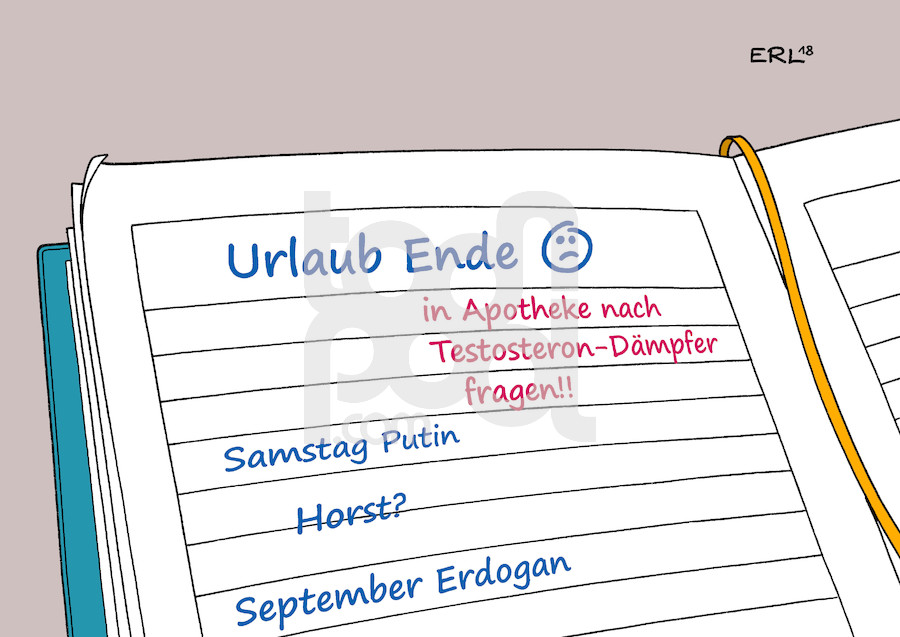 ERL18
Urlaub Ende ☹
in Apotheke nach
Testosteron-Dämpfer
fragen!!
Samstag Putin
Horst?
September Erdogan
toonpool
.com